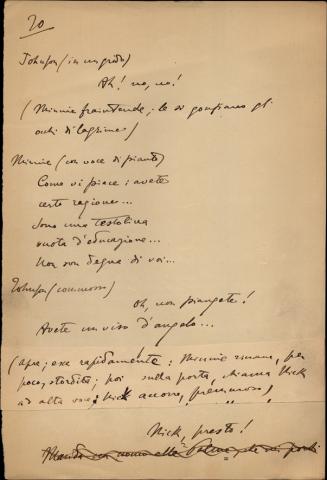 20
Johnson (in un grido)
Ah! no, no!
(Minnie fraintende; le si gonfiano gli
occhi di lagrime)
Minnie (con voce di pianto)
Come vi piace; avete
certo ragione...
Sono una testolina
vuota d'educazione...
Non son degna di voi...
Johnson (commosso)
Oh, non piangete!
Avete un viso d'angelo...
(apre; esce rapidamente: Minnie rimane, per
poco, stordita; poi sulla porta, chiama Nick
ad alta voce: Nick accorre, premuroso)
Nick, presto!
Manda un uomo alle